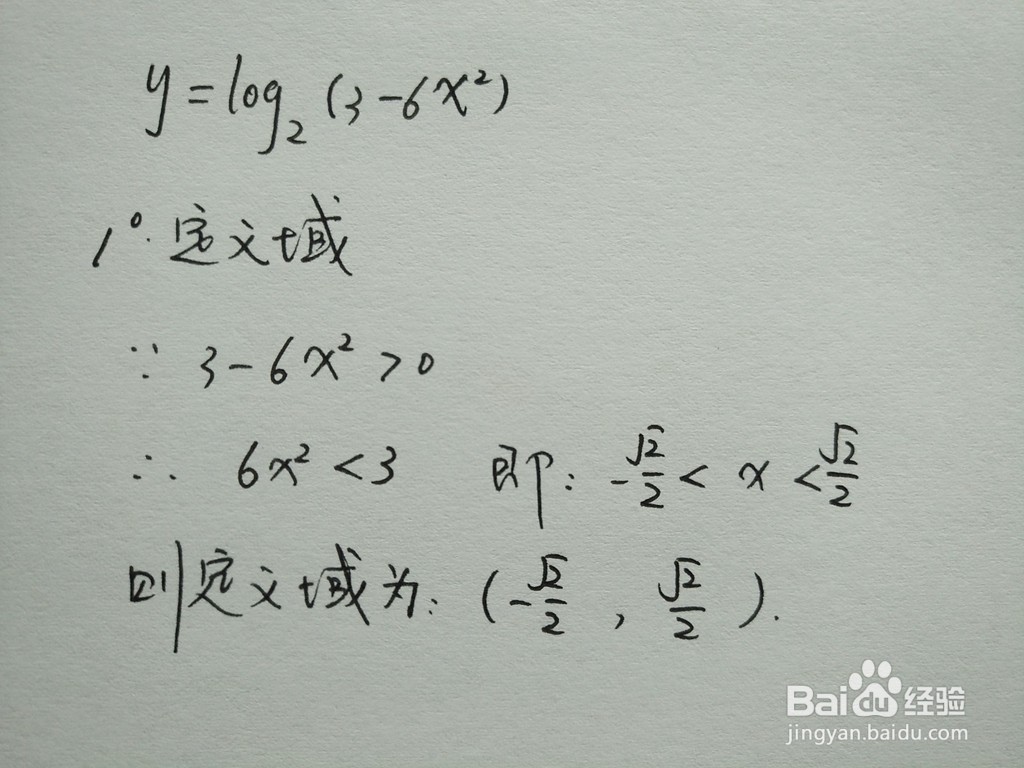 y=log₂(3-6x²)
1°.定义域
∵ 3-6x²>0
∴ 6x²<3 即: -√2/2< x <√2/2
则定义域为: (-√2/2 , √2/2 ).
Baidu经验
jingyan.baidu.com